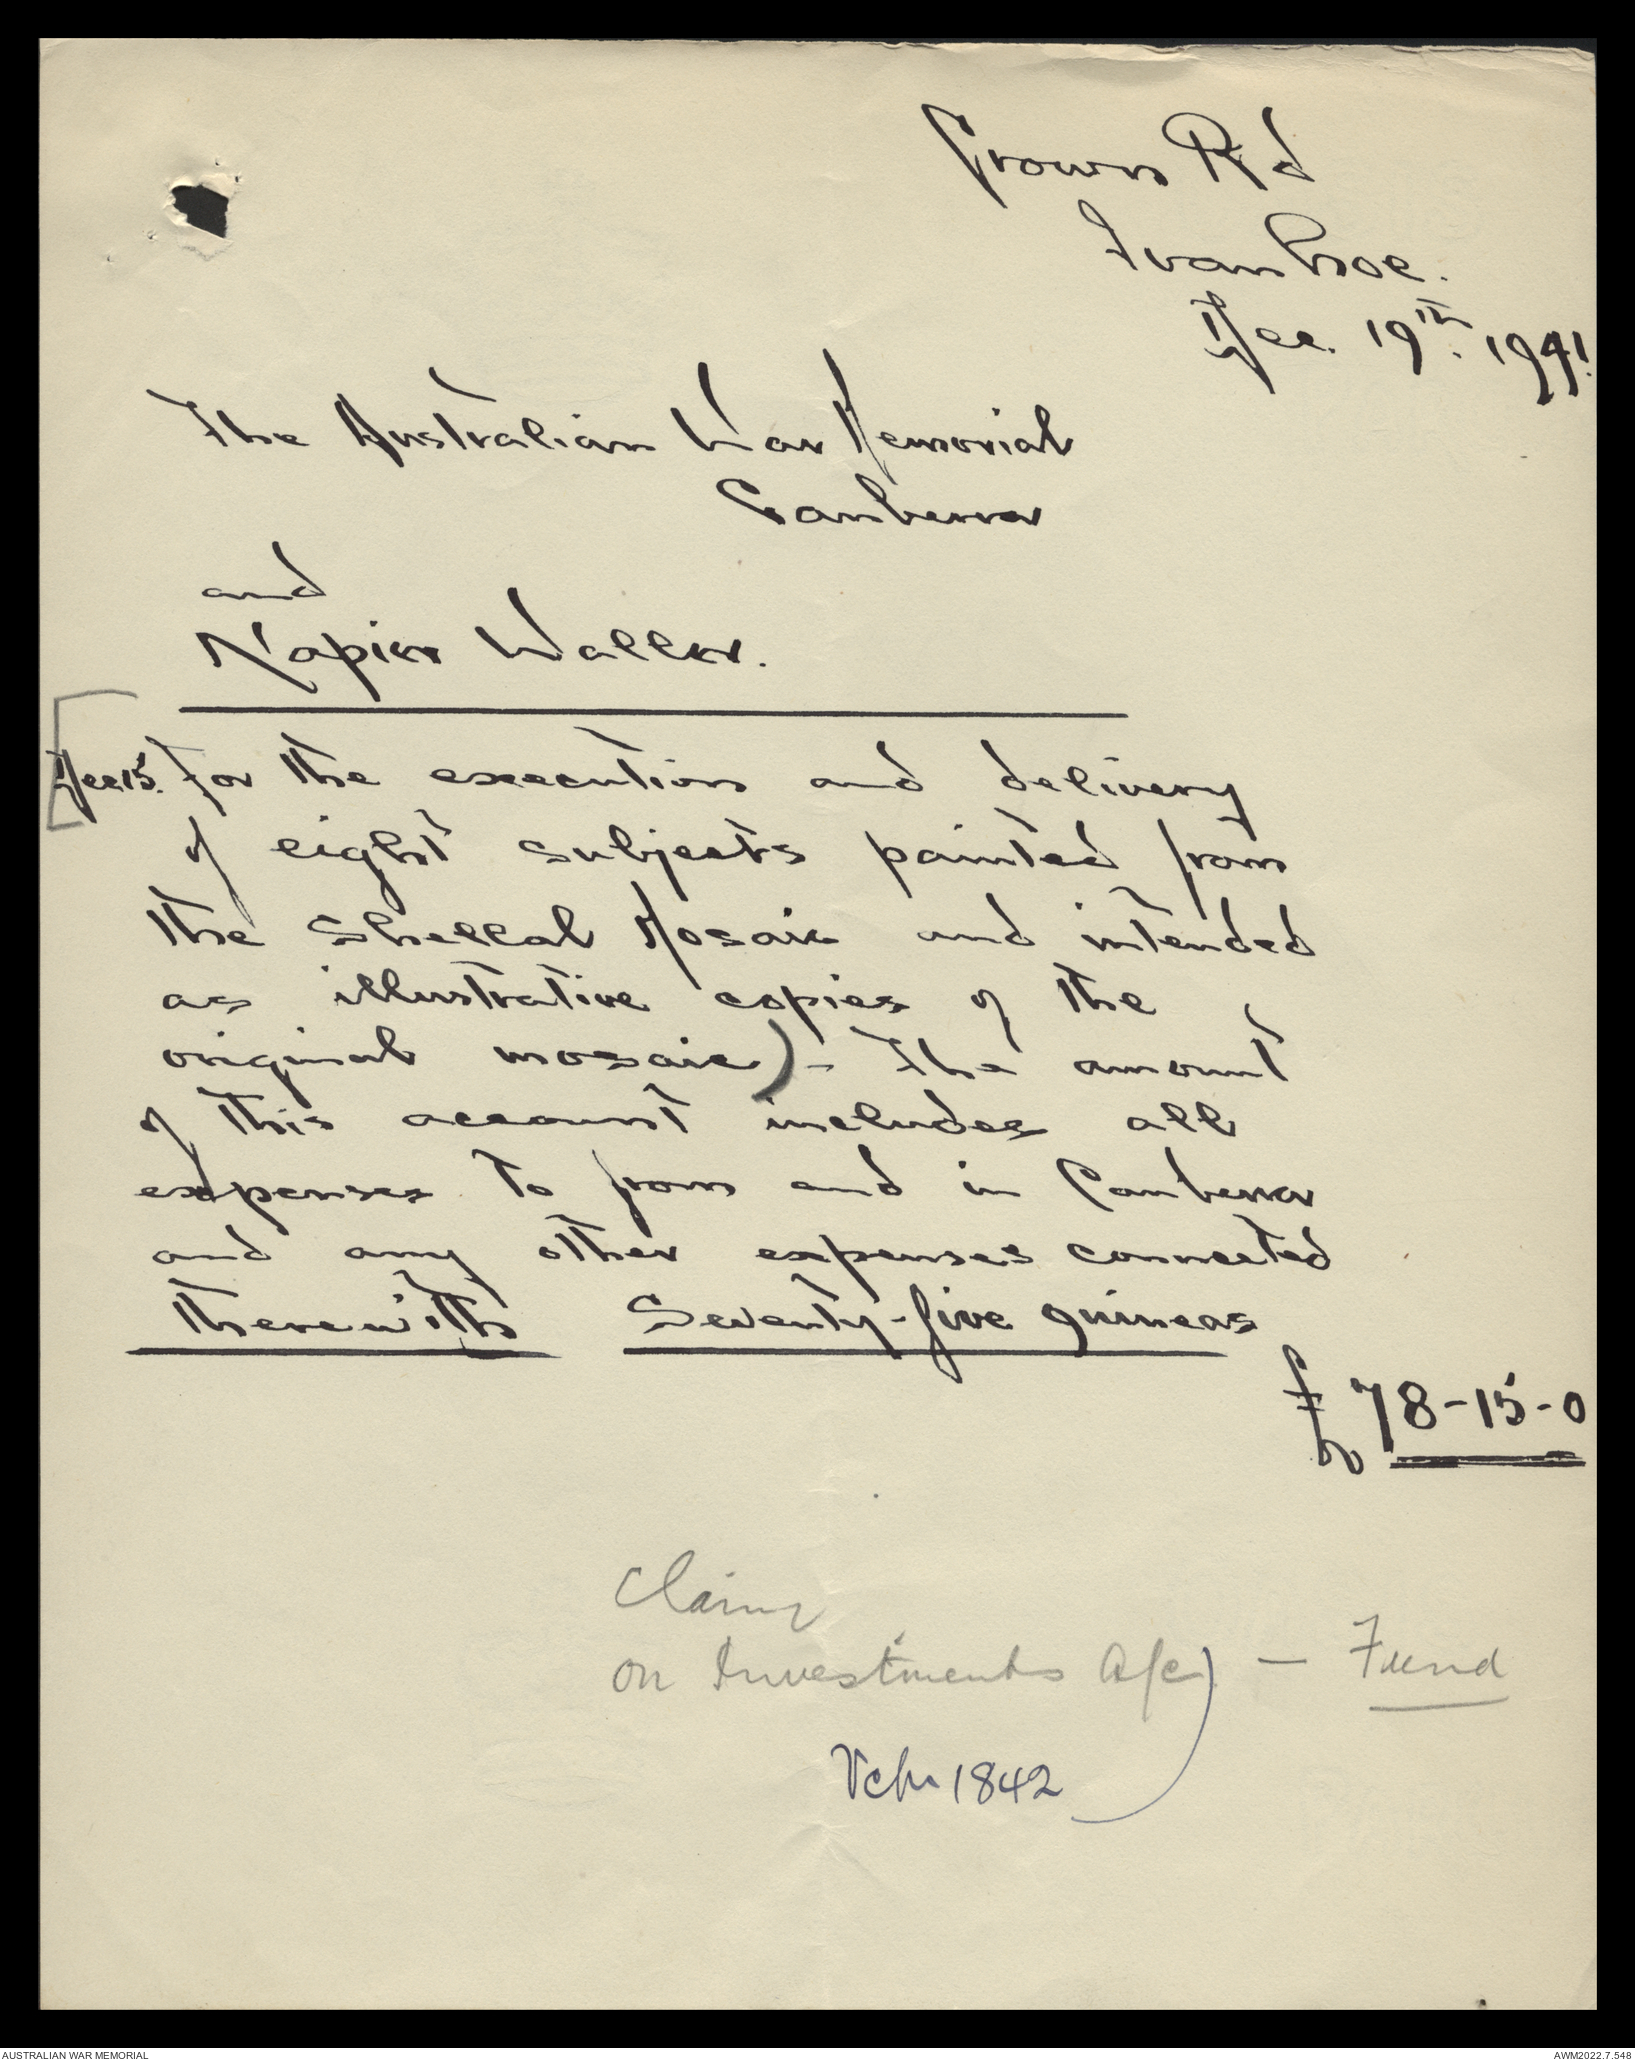 Crown Rd
Ivanhoe.
Dec. 19th. 1941.
The Australian War Memorial
Canberra
and
Napier Waller.
Dec 15. For the execution and delivery
of eight subjects painted from
the Shellal Mosaic and intended
as illustrative copies of the
original mosaic) - The amount
of this account includes all
expenses to from and in Canberra
and any other expenses connected
therewith Seventy-five guineas
£ 78-15-0
Claim
on Investments A/c) — Fund
Vchr 1842
AUSTRALIAN WAR MEMORIAL
AWM2022.7.548